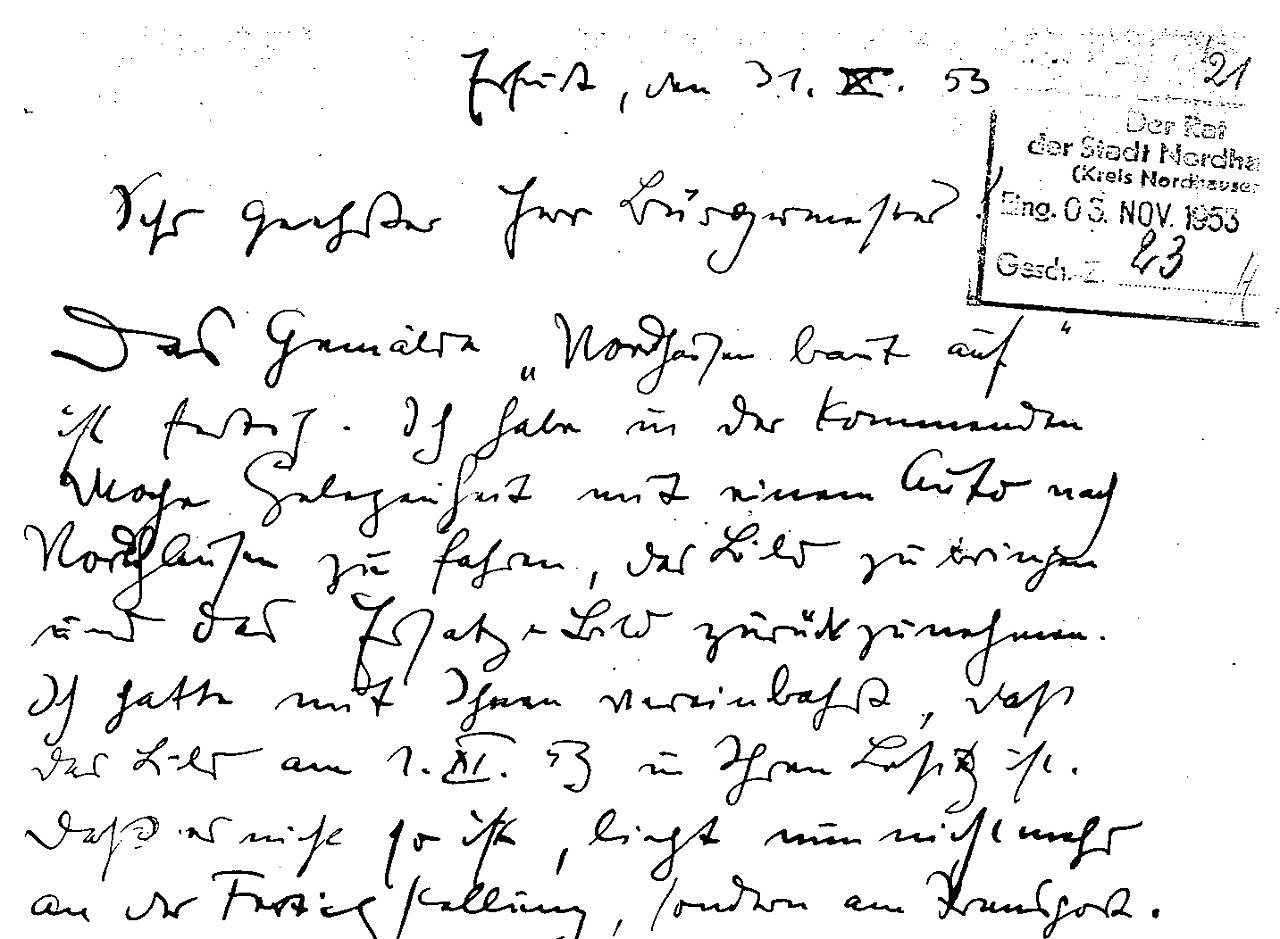 21
Erfurt, den 31. X. 53
Der Rat
der Stadt Nordha
(Kreis Nordhause
Eing. 03. NOV. 1953
Gesch. Z. 23
Sehr geehrter Herr Bürgermeister!
Das Gemälde „Nordhausen baut auf“
ist fertig. Ich habe in der kommenden
Woche Gelegenheit mit einem Auto nach
Nordhausen zu fahren, das Bild zu bringen
und das Ersatz-Bild zurückzunehmen.
Ich hatte mit Ihnen vereinbahrt, daß
das Bild am 1. XI. 53 in Ihren Besitz ist.
Daß es nicht so ist, liegt nun nicht mehr
an der Fertigstellung, sondern am Transport.